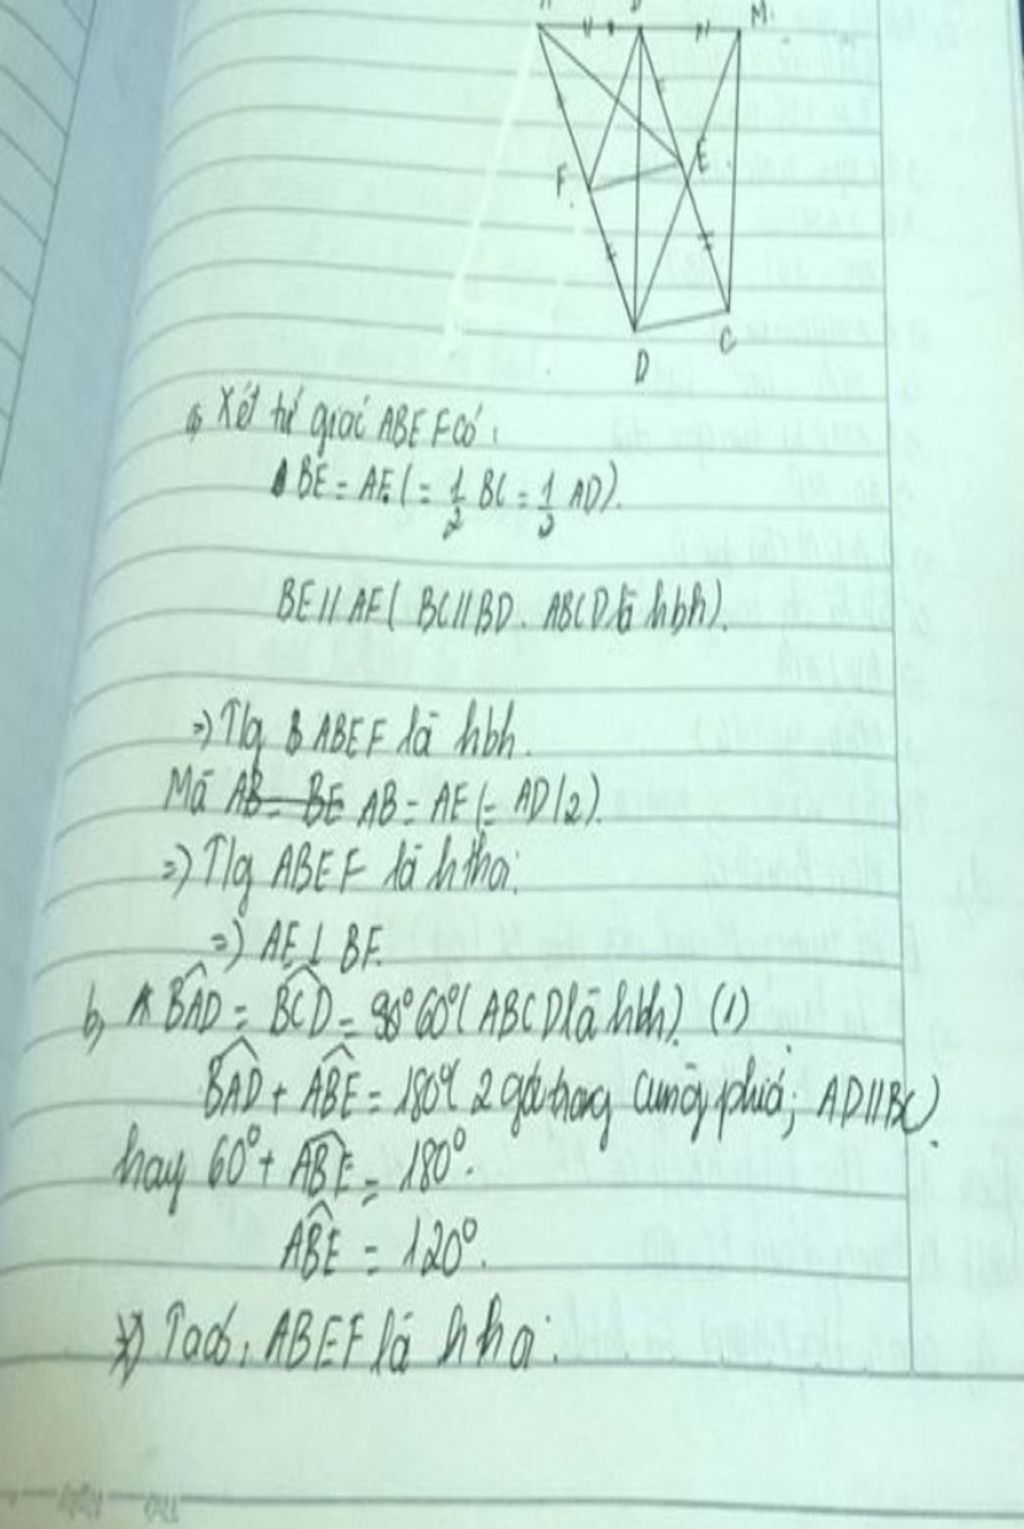 M.
E
F.
D
C
a, Xét tứ giác ABEF có:
BE = AF (= 1/2 BC = 1/2 AD).
BE // AF ( BC // BD. ABCD là hbh).
=) T/g ABEF là hbh.
Mà AB = BE AB = AF (= AD/2).
=) T/g ABEF là h thoi.
=) AE ⊥ BF.
b, BAD = BCD = 90° 60° ( ABCD là hbh). (1)
BAD + ABE = 180° ( 2 góc trong cùng phía; AD // BC).
hay 60° + ABE = 180°.
ABE = 120°.
Ta có, ABEF là h hoi.